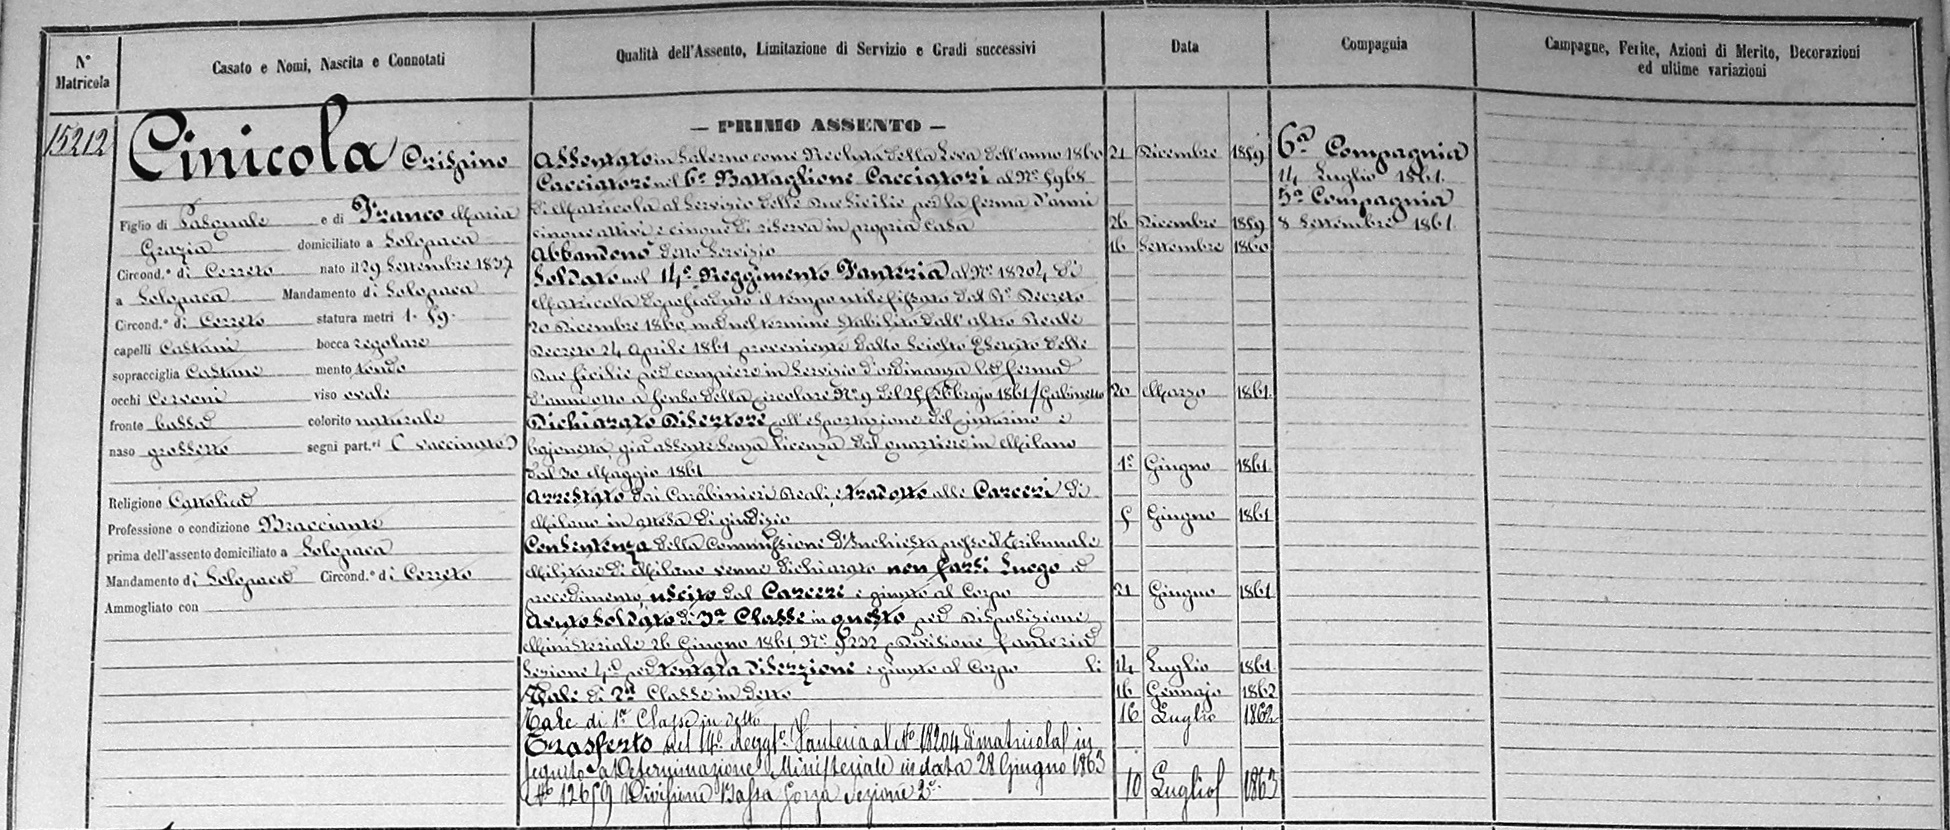 N° Matricola
Casato e Nomi, Nascita e Connotati
Qualità dell'Assento, Limitazione di Servizio e Gradi successivi
Data
Compagnia
Campagne, Ferite, Azioni di Merito, Decorazioni
ed ultime variazioni
15212
Cinicola Crispino
Figlio di Pasquale e di Franco Maria
Grazia domiciliato a Solopaca
Circond.° di Cerreto nato il 29 Settembre 1837
a Solopaca Mandamento di Solopaca
Circond.° di Cerreto statura metri 1. 59.
capelli Castani bocca regolare
sopracciglia Castane mento tondo
occhi Cervoni viso ovale
fronte bassa colorito naturale
naso grossetto segni part.ri ( vaccinato )
Religione Cattolica
Professione o condizione Bracciante
prima dell'assento domiciliato a Solopaca
Mandamento di Solopaca Circond.° di Cerreto
Ammogliato con
— PRIMO ASSENTO —
Assentato in Salerno come Recluta della Leva dell'anno 1860 21 Dicembre 1859
Cacciatore nel 6° Battaglione Cacciatori al N° 5968
di Matricola al Servizio delle Due Sicilie per la ferma d'anni
cinque attivi e cinque di riserva in propria Casa 26 Dicembre 1859
Abbandonò detto Servizio 16 Settembre 1860
Soldato nel 14° Reggimento Fanteria al N° 18204 di
Matricola dopo spirato il tempo utile fissato dal R° Decreto
20 Dicembre 1860, ma nel termine stabilito dall'altro Reale
Decreto 24 Aprile 1861 proveniente dallo Sciolto Esercito delle
Due Sicilie per compiere in Servizio d'ordinanza la ferma
d'anni otto a senso della Circolare N° 9 del 25 Febbrajo 1861 / Gabinetto 20 Marzo 1861.
Dichiarato Disertore coll'esportazione del cinturino e
bajonetta, già assente senza licenza dal quartiere in Milano
dal 30 Maggio 1861 1° Giugno 1861
Arrestato dai Carabinieri Reali e tradotto alle Carceri di
Milano in attesa di giudizio 5 Giugno 1861
Con Sentenza della Commissione d'Inchiesta presso il Tribunale
Militare di Milano venne dichiarato non farsi luogo a
procedimento, uscito dal Carcere e giunto al Corpo 21 Giugno 1861
Avuto Soldato di 3a Classe in questo per Disposizione
Ministeriale 26 Giugno 1861, N° 5232, Divisione fanteria
Sezione 4a per tentata diserzione e giunto al Corpo li 14 Luglio 1861
Tale di 2a Classe in detto 16 Gennajo 1862
Tale di 1a Classe in detto 16 Luglio 1862
Trasferto nel 14° Regg.to Fanteria al N° 18204 di matricola in
seguito a Determinazione Ministeriale in data 28 Giugno 1863
N° 12659 Divisione Bassa forza Sezione 2a 10 Luglio 1863
6a Compagnia
14 Luglio 1861.
5a Compagnia
8 Settembre 1861.